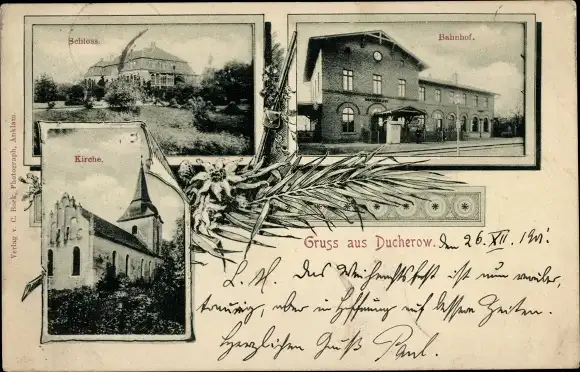 Schloss.
Bahnhof.
Kirche.
Verlag v. C. Beck, Photograph, Anklam.
Gruss aus Ducherow. den 26. XII. 190
L. H. Das Weihnachtsfest ist nun vorüber,
traurig, aber in Hoffnung auf bessere Zeiten.
Herzlichen Gruß Paul.